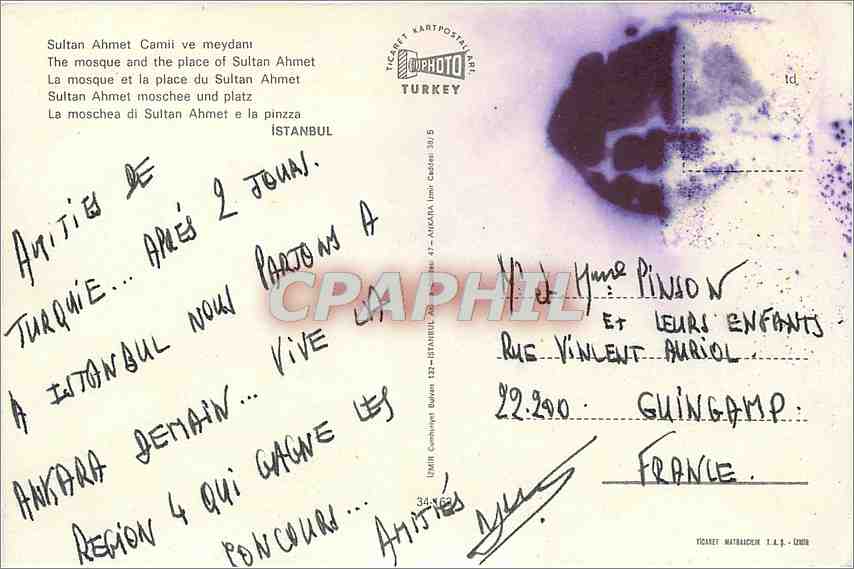 Sultan Ahmet Camii ve meydanı
The mosque and the place of Sultan Ahmet
La mosque et la place du Sultan Ahmet
Sultan Ahmet moschee und platz
La moschea di Sultan Ahmet e la pinzza
İSTANBUL
TİCARET KARTPOSTAL ART.
PHOTO
TURKEY
td
AMITIÉS DE
TURQUIE... APRÉS 2 JOURS.
A ISTANBUL NOUS PARTONS A
ANKARA DEMAIN... VIVE LA
REGION 4 QUI GAGNE LES
CONCOURS...
AMITIÉS
İZMİR Cumhuriyet Bulvarı 132 - İSTANBUL 47 - ANKARA İzmir Caddesi 38/5
34-163
CPAPHIL
Mr et Mme PINSON
ET LEURS ENFANTS
RUE VINCENT AURIOL.
22.200. GUINGAMP.
FRANCE.
TİCARET MATBAACILIK T.A.Ş. - İZMİR